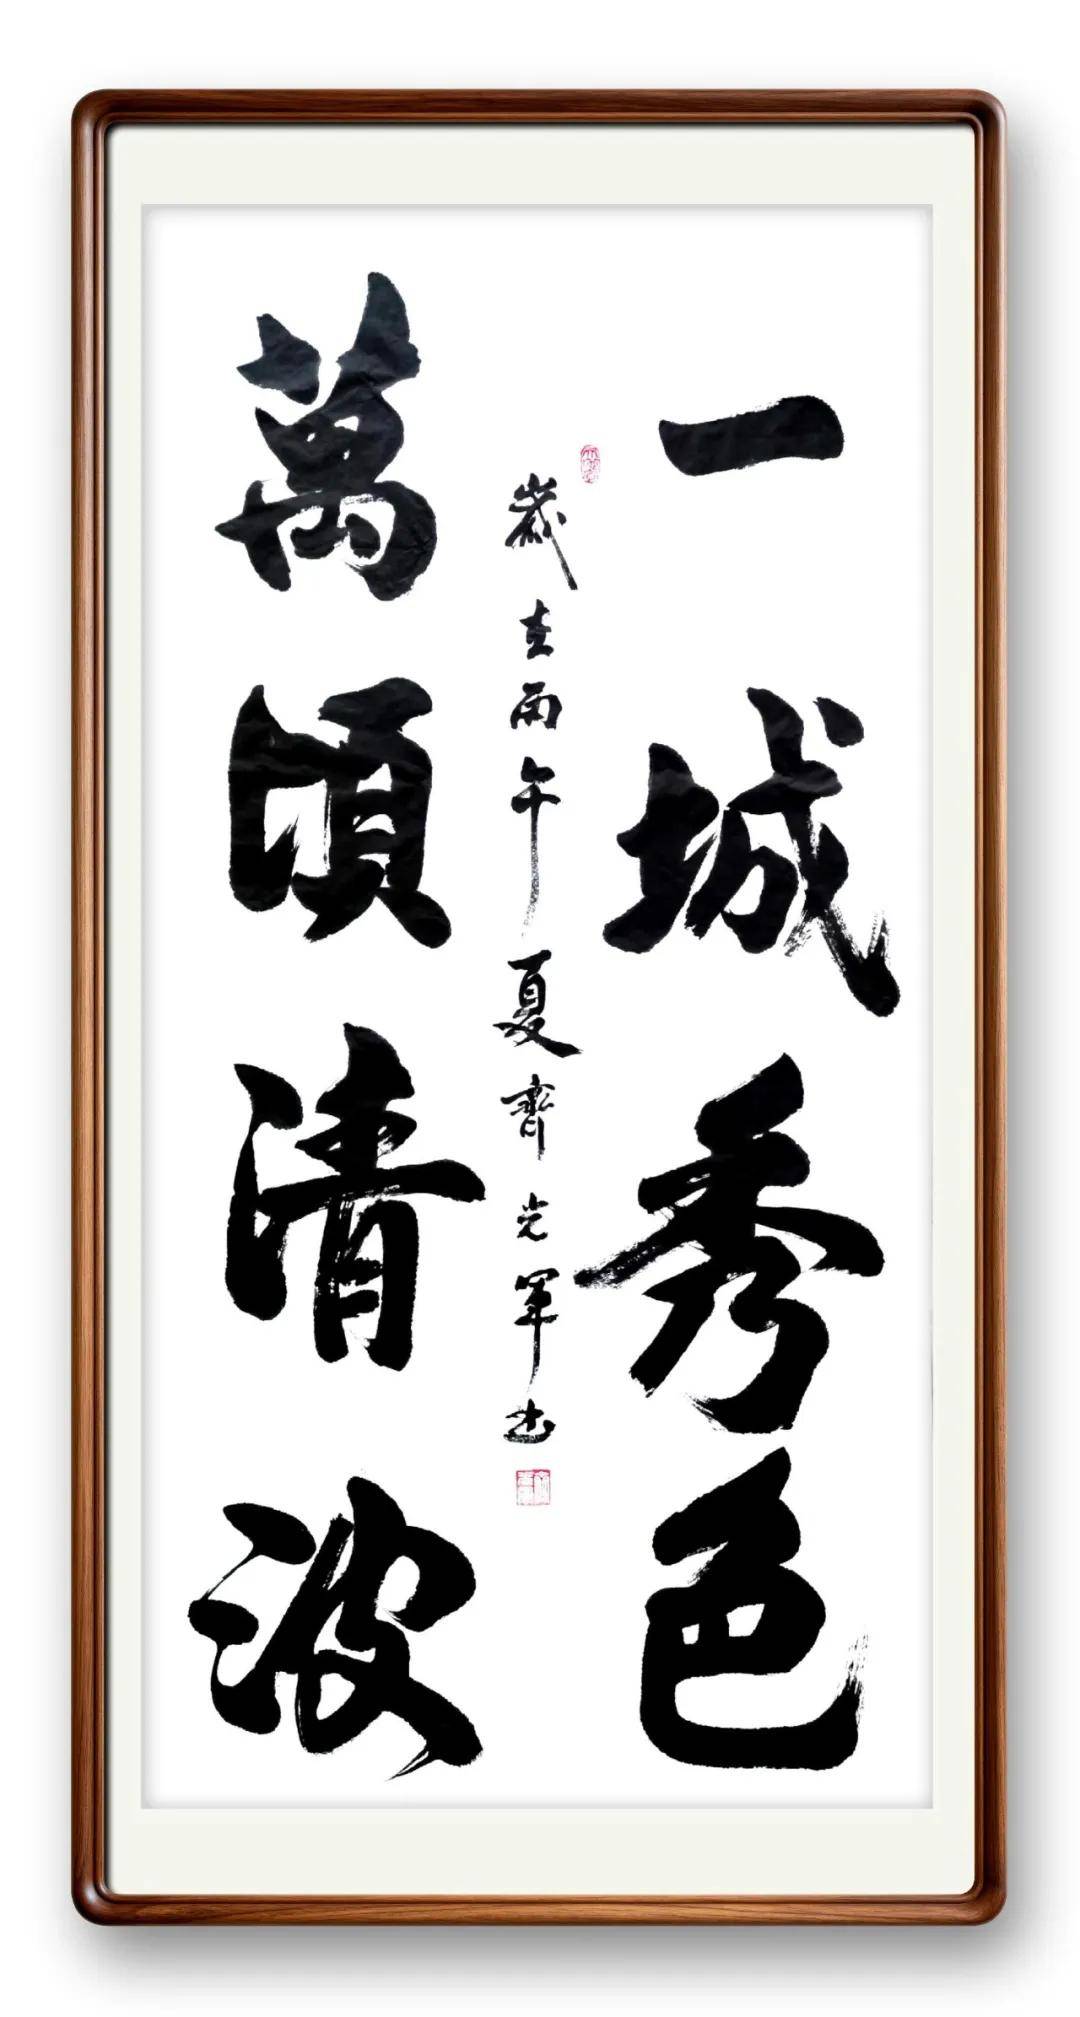 一城秀色
萬頃清波
歲在丙午夏齊光軍书